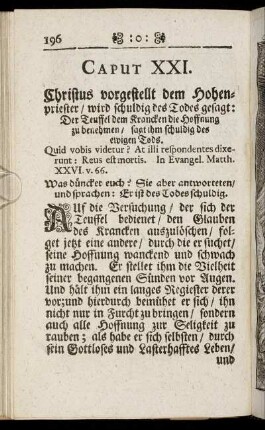 196 :o:
CAPUT XXI.
Christus vorgestellt dem Hohen-
priester/ wird schuldig des Todes gesagt:
Der Teuffel dem Krancken die Hoffnung
zu benehmen/ sagt ihm schuldig des
ewigen Tods.
Quid vobis videtur? At illi respondentes dixe-
runt: Reus est mortis. In Evangel. Matth.
XXVI. v. 66.
Was düncket euch? Sie aber antworteten/
und sprachen: Er ist des Todes schuldig.
AUf die Versuchung/ der sich der
Teuffel bedienet/ den Glauben
des Krancken auszulöschen/ fol-
get jetzt eine andere/ durch die er suchet/
seine Hoffnung wanckend und schwach
zu machen. Er stellet ihm die Vielheit
seiner begangenen Sünden vor Augen.
Und hält ihm ein langes Register derer
vor; und hierdurch bemühet er sich/ ihn
nicht nur in Furcht zu bringen/ sondern
auch alle Hoffnung zur Seligkeit zu
rauben; als habe er sich selbsten/ durch
sein Gottloses und Lasterhafftes Leben/
und